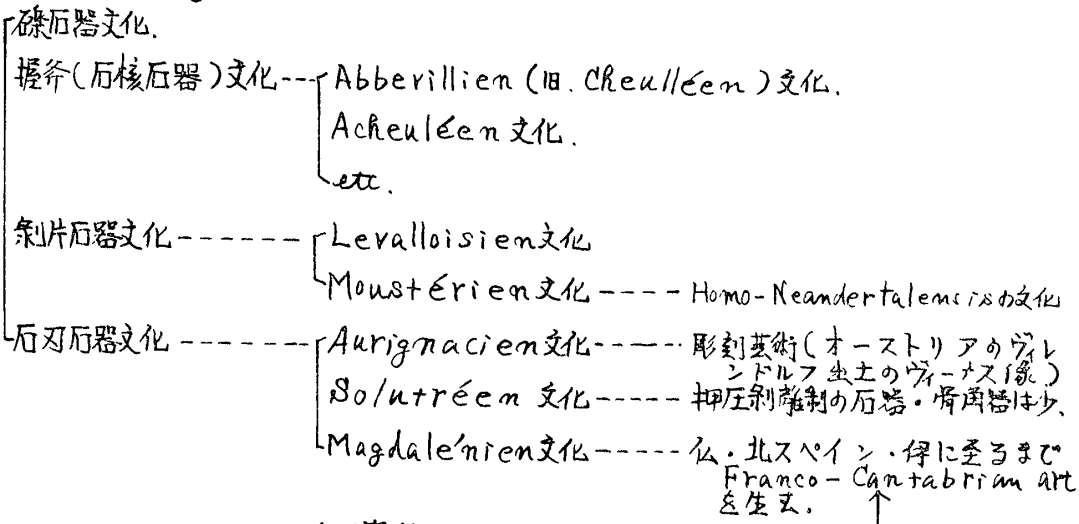 礫石器文化.
握斧(石核石器)文化---Abbevillien(旧.Cheulléen)文化.
Acheuléen文化.
etc.
剥片石器文化------Levalloisien文化
Moustérien文化----Homo-Neandertalensisの文化
石刃石器文化------Aurignacien文化-----彫刻芸術(オーストリアのヴィレ
ンドルフ出土のヴィーナス像)
Solutréen文化-----押圧剥離制の石器・骨角器は少、
Magdalénien文化-----仏・北スペイン・得に至るまで
Franco-Cantabrian art
を生む.